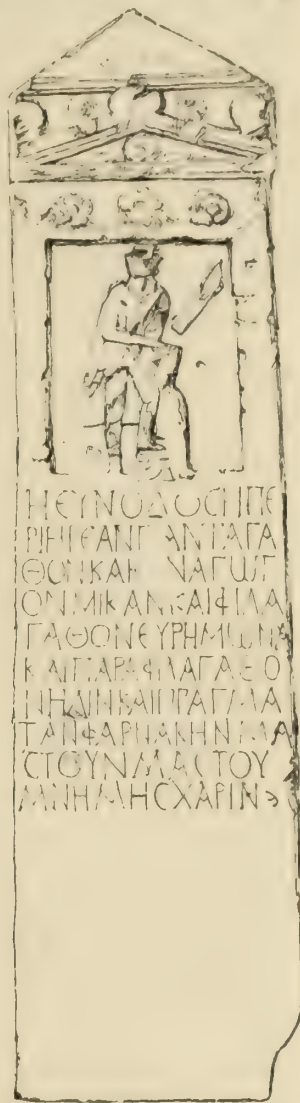 ΗΕΥΝΟΔΟϹΗΠΕ
ΡΙΕΙΕΑΝΠΑΝΤΑΓΑ
ΘΟΝΚΑΙ ΝΑΓΩΓ
ΟΝΜΙΚΑΝΚΑΙΦΙΛΑ
ΓΑΘΟΝΕΥΡΗΜΩΝ
ΚΑΙΠΑΡΑΦΙΛΑΓΑΘΟ
ΝΗΔΙΝΚΑΙΠΡΑΓΜΑ
ΤΑΝΦΑΡΝΑΚΗΝΜΑ
ϹΤΟΥΝΜΑϹΤΟΥ
ΜΝΗΜΗϹΧΑΡΙΝ